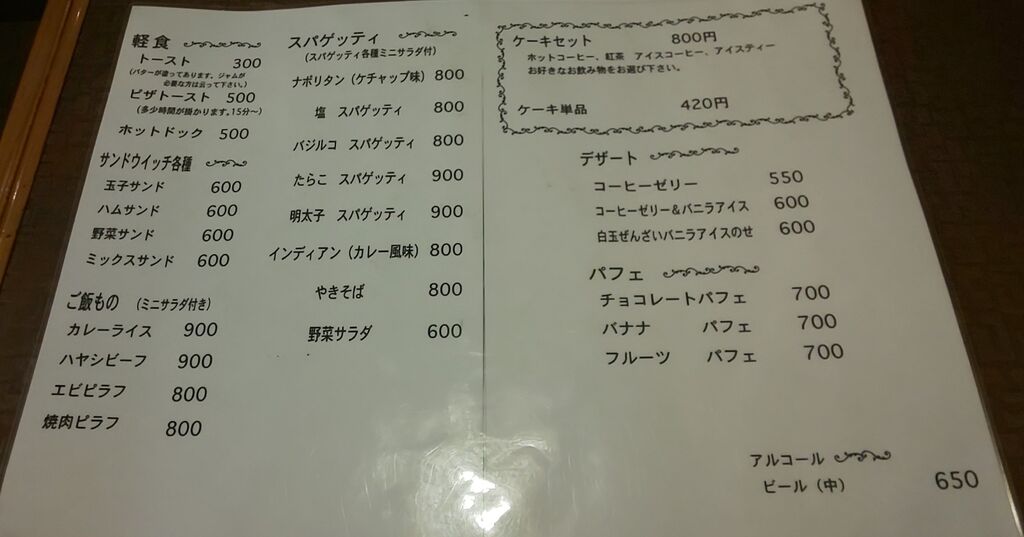 軽食
トースト 300
(バターが塗ってあります。ジャムが
必要な方は云って下さい。)
ピザトースト 500
(多少時間が掛かります。15分〜)
ホットドック 500
サンドウイッチ各種
玉子サンド 600
ハムサンド 600
野菜サンド 600
ミックスサンド 600
ご飯もの (ミニサラダ付き)
カレーライス 900
ハヤシビーフ 900
エビピラフ 800
焼肉ピラフ 800
スパゲッティ
(スパゲッティ各種ミニサラダ付)
ナポリタン(ケチャップ味) 800
塩 スパゲッティ 800
バジルコ スパゲッティ 800
たらこ スパゲッティ 900
明太子 スパゲッティ 900
インディアン(カレー風味) 800
やきそば 800
野菜サラダ 600
ケーキセット 800円
ホットコーヒー、紅茶 アイスコーヒー、アイスティー
お好きなお飲み物をお選び下さい。
ケーキ単品 420円
デザート
コーヒーゼリー 550
コーヒーゼリー&バニラアイス 600
白玉ぜんざいバニラアイスのせ 600
パフェ
チョコレートパフェ 700
バナナ パフェ 700
フルーツ パフェ 700
アルコール
ビール(中) 650